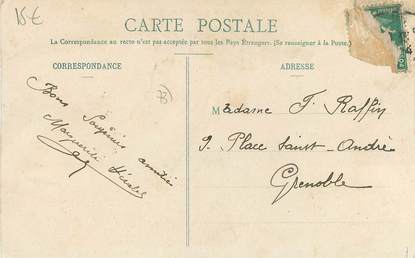 15€
CARTE POSTALE
La Correspondance au recto n'est pas acceptée par tous les Pays Étrangers. (Se renseigner à la Poste.)
CORRESPONDANCE
Bons
amitiés
Marguerite
ADRESSE
Madame F. Raffin
9. Place Saint-André
Grenoble